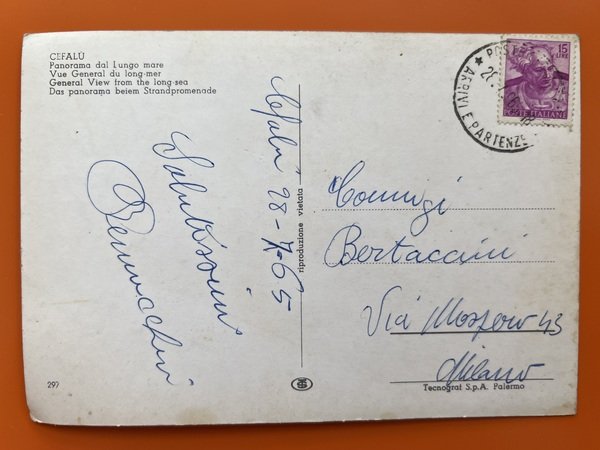 CEFALÙ
Panorama dal Lungo mare
Vue General du long-mer
General View from the long-sea
Das panorama beiem Strandpromenade
Cefalù 28-7-65
Salutissimi
riproduzione vietata
15
LIRE
POSTE ITALIANE
ARRIVI E PARTENZE
Coniugi
Bertaccini
Via Moscova 43
Milano
Tecnograf S.p.A. Palermo
297